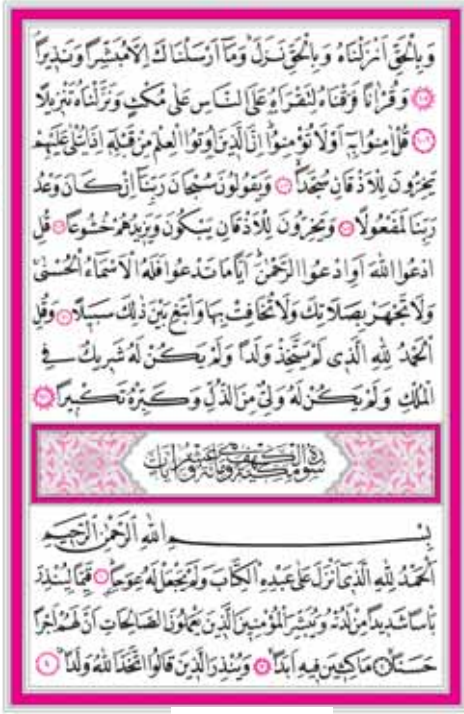 وَبِالْحَقِّ اَنْزَلْنَاهُ وَبِالْحَقِّ نَزَلَ وَمَٓا اَرْسَلْنَاكَ اِلَّا مُبَشِّرًا وَنَذِيرًاۢ
﴿١٠٥﴾ وَقُرْاٰنًا فَرَقْنَاهُ لِتَقْرَاَهُ عَلَى النَّاسِ عَلٰى مُكْثٍ وَنَزَّلْنَاهُ تَنْزِيلًا
﴿١٠٦﴾ قُلْ اٰمِنُوا بِهٖٓ اَوْ لَا تُؤْمِنُواۜ اِنَّ الَّذِينَ اُوتُوا الْعِلْمَ مِنْ قَبْلِهٖٓ اِذَا يُتْلٰى عَلَيْهِمْ
يَخِرُّونَ لِلْاَذْقَانِ سُجَّدًاۙ ﴿١٠٧﴾ وَيَقُولُونَ سُبْحَانَ رَبِّنَٓا اِنْ كَانَ وَعْدُ
رَبِّنَا لَمَفْعُولًا ﴿١٠٨﴾ وَيَخِرُّونَ لِلْاَذْقَانِ يَبْكُونَ وَيَزِيدُهُمْ خُشُوعًا ﴿١٠٩﴾ قُلِ
ادْعُوا اللّٰهَ اَوِ ادْعُوا الرَّحْمٰنَۜ اَيًّا مَا تَدْعُوا فَلَهُ الْاَسْمَٓاءُ الْحُسْنٰىۚ
وَلَا تَجْهَرْ بِصَلَاتِكَ وَلَا تُخَافِتْ بِهَا وَابْتَغِ بَيْنَ ذٰلِكَ سَبِيلًا ﴿١١٠﴾ وَقُلِ
الْحَمْدُ لِلّٰهِ الَّذِي لَمْ يَتَّخِذْ وَلَدًا وَلَمْ يَكُنْ لَهُ شَرِيكٌ فِي
الْمُلْكِ وَلَمْ يَكُنْ لَهُ وَلِيٌّ مِنَ الذُّلِّ وَكَبِّرْهُ تَكْبِيرًا ﴿١١١﴾
سورة الكهف مكية وهي مائة وعشر ايات
بِسْمِ اللّٰهِ الرَّحْمٰنِ الرَّحِيمِ
اَلْحَمْدُ لِلّٰهِ الَّذِٓي اَنْزَلَ عَلٰى عَبْدِهِ الْكِتَابَ وَلَمْ يَجْعَلْ لَهُ عِوَجًاۜ ﴿١﴾ قَيِّمًا لِيُنْذِرَ
بَاْسًا شَدِيدًا مِنْ لَدُنْهُ وَيُبَشِّرَ الْمُؤْمِنِينَ الَّذِينَ يَعْمَلُونَ الصَّالِحَاتِ اَنَّ لَهُمْ اَجْرًا
حَسَنًاۙ ﴿٢﴾ مَاكِثِينَ فِيهِ اَبَدًاۙ ﴿٣﴾ وَيُنْذِرَ الَّذِينَ قَالُوا اتَّخَذَ اللّٰهُ وَلَدًاۗ ﴿٤﴾